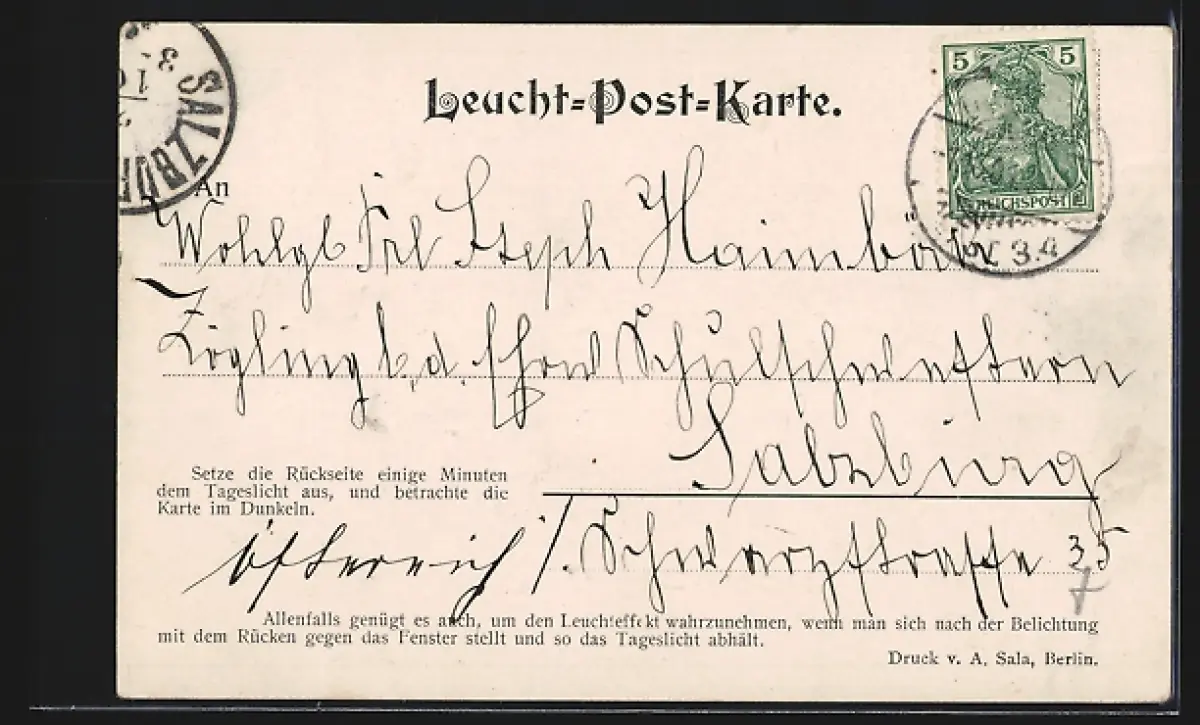 SALZBUR
Leucht=Post=Karte.
5 5
REICHSPOST
An
Wohlgb Frl Steph Haimböck
Zögling b. d. ehrw Schulschwestern
Salzburg
Setze die Rückseite einige Minuten
dem Tageslicht aus, und betrachte die
Karte im Dunkeln.
Österreich /. Schwarzstrasse 35
7
Allenfalls genügt es auch, um den Leuchteffekt wahrzunehmen, wenn man sich nach der Belichtung
mit dem Rücken gegen das Fenster stellt und so das Tageslicht abhält.
Druck v. A. Sala, Berlin.